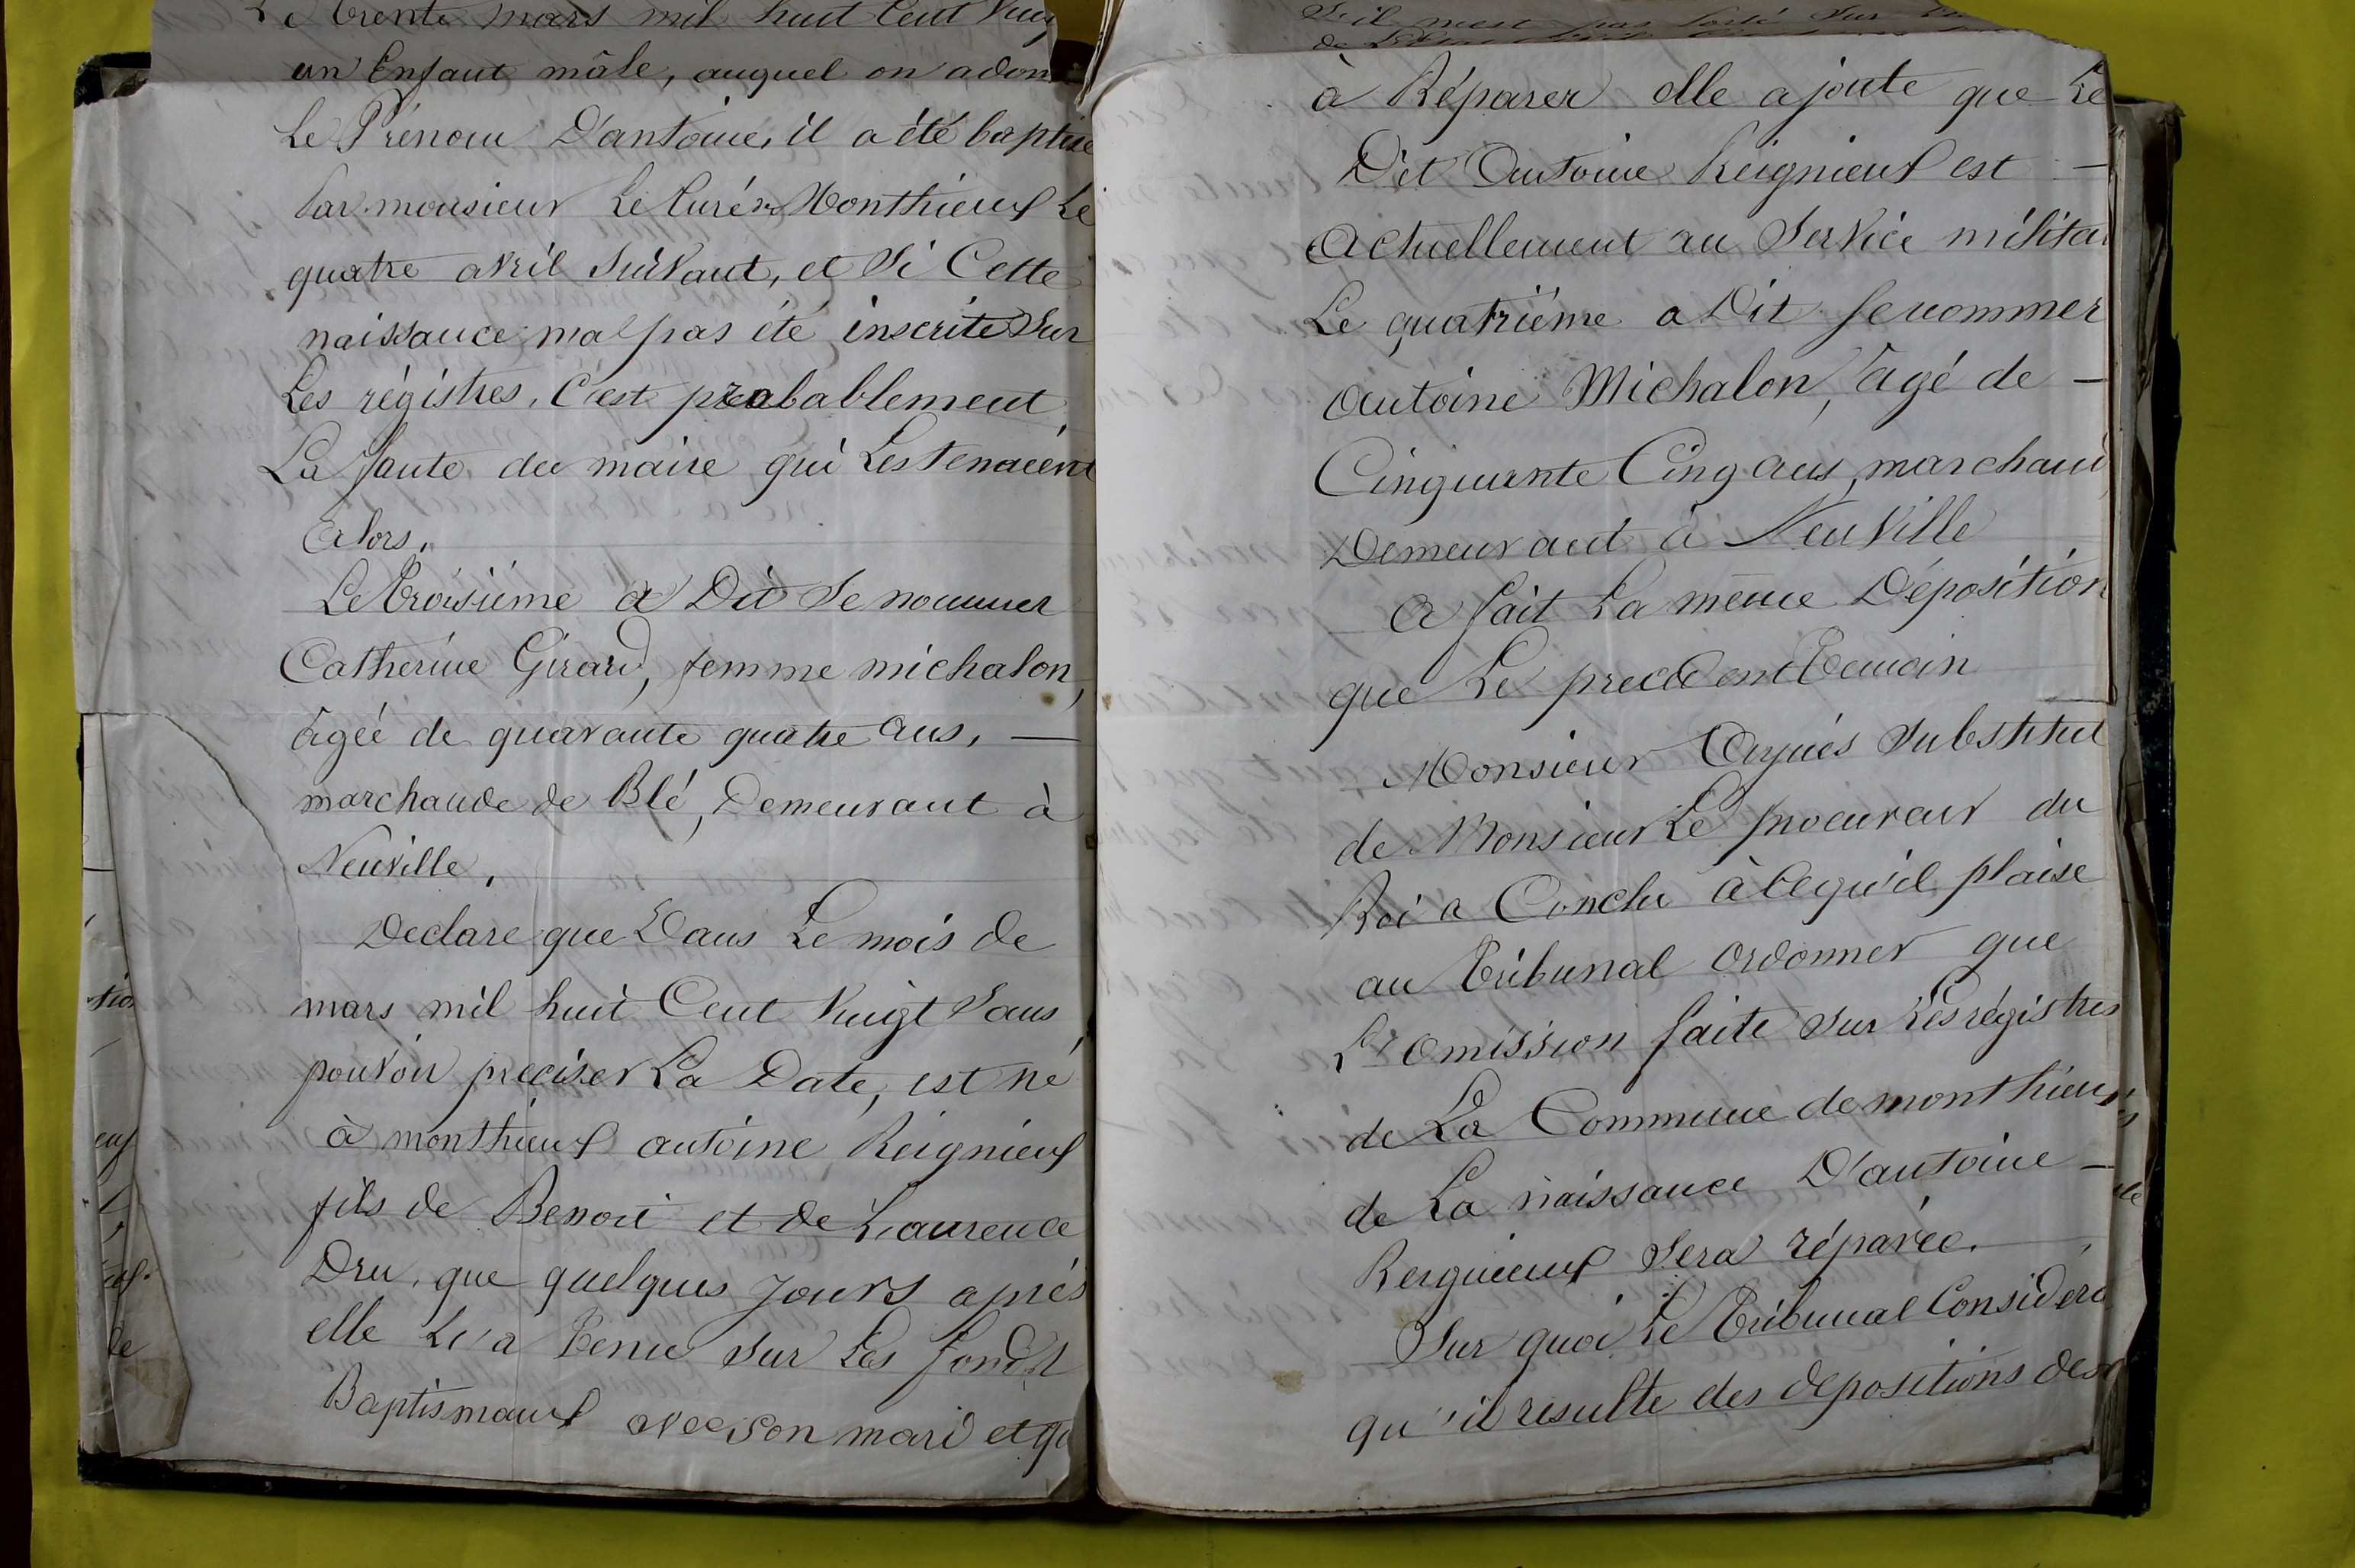 Le trente mars mil huit Cent vin
un Enfant mâle, auquel on a don
Le Prénom D'antoine, il a été baptisé
Par monsieur Le Curé de Monthieux Le
quatre avril suivant, et si Cette
naissance n'a pas été inscrite sur
Les régistres, C'est probablement
La faute du maire qui Les tenaient
alors.
Le troisième a Dit se nommer
Catherine Girard, femme michalon,
agée de quarante quatre ans, —
marchande de Blé, Demeurant à
Neuville.
Declare que Dans Le mois de
mars mil huit Cent vingt Sans
pouvoir preciser La Date, est né
à monthieux antoine Reignieux
fils de Benoit et de Laurence
Dru, que quelques jours après
elle L'a tenu sur Les fonds
Baptismaux avec son mari et qu
à Réparer elle ajoute que Le
Dit antoine Reignieux est —
actuellement au service milita
Le quatrième a Dit se nommer
antoine Michalon, agé de —
Cinquante Cinq ans, marchand
Demeurant à Neuville
a fait La même Déposition
que Le precedent temoin
Monsieur substitut
de Monsieur Le procureur du
Roi a Conclu à Ce qu'il plaise
au tribunal ordonner que
L'omission faite sur Les régistres
de La Commune de monthieux
de La naissance D'antoine —
Reignieux sera réparée.
Sur quoi Le tribunal Considera
qu'il resulte des depositions des